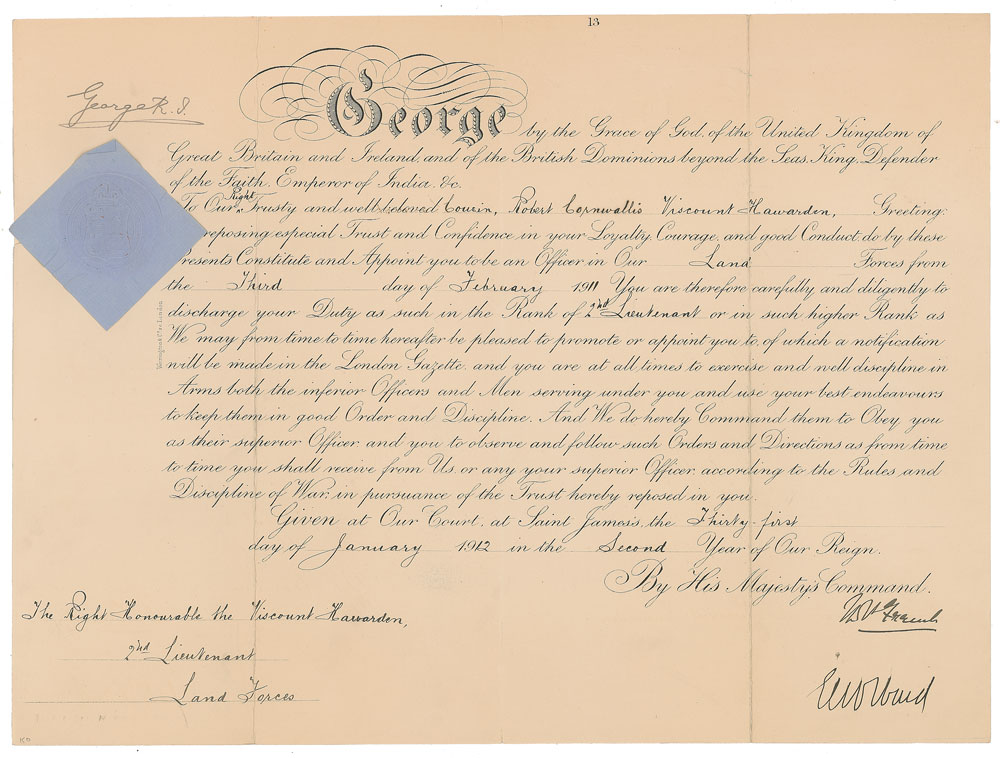 13
George R. I.
George by the Grace of God, of the United Kingdom of
Great Britain and Ireland, and of the British Dominions beyond the Seas, King, Defender
of the Faith, Emperor of India, &c.
To Our Right Trusty and well beloved Cousin, Robert Cornwallis Viscount Hawarden, Greeting:
reposing especial Trust and Confidence in your Loyalty, Courage, and good Conduct, do by these
Presents Constitute and Appoint you to be an Officer in Our Land Forces from
the Third day of February 1911 You are therefore carefully and diligently to
discharge your Duty as such in the Rank of 2nd Lieutenant or in such higher Rank as
We may from time to time hereafter be pleased to promote or appoint you to, of which a notification
will be made in the London Gazette, and you are at all times to exercise and well discipline in
Arms both the inferior Officers and Men serving under you and use your best endeavours
to keep them in good Order and Discipline. And We do hereby Command them to Obey you
as their superior Officer, and you to observe and follow such Orders and Directions as from time
to time you shall receive from Us, or any your superior Officer, according to the Rules and
Discipline of War, in pursuance of the Trust hereby reposed in you.
Given at Our Court, at Saint James's, the Thirty-first
day of January 1912 in the Second Year of Our Reign.
By His Majesty's Command.
The Right Honourable the Viscount Hawarden,
2nd Lieutenant
Land Forces